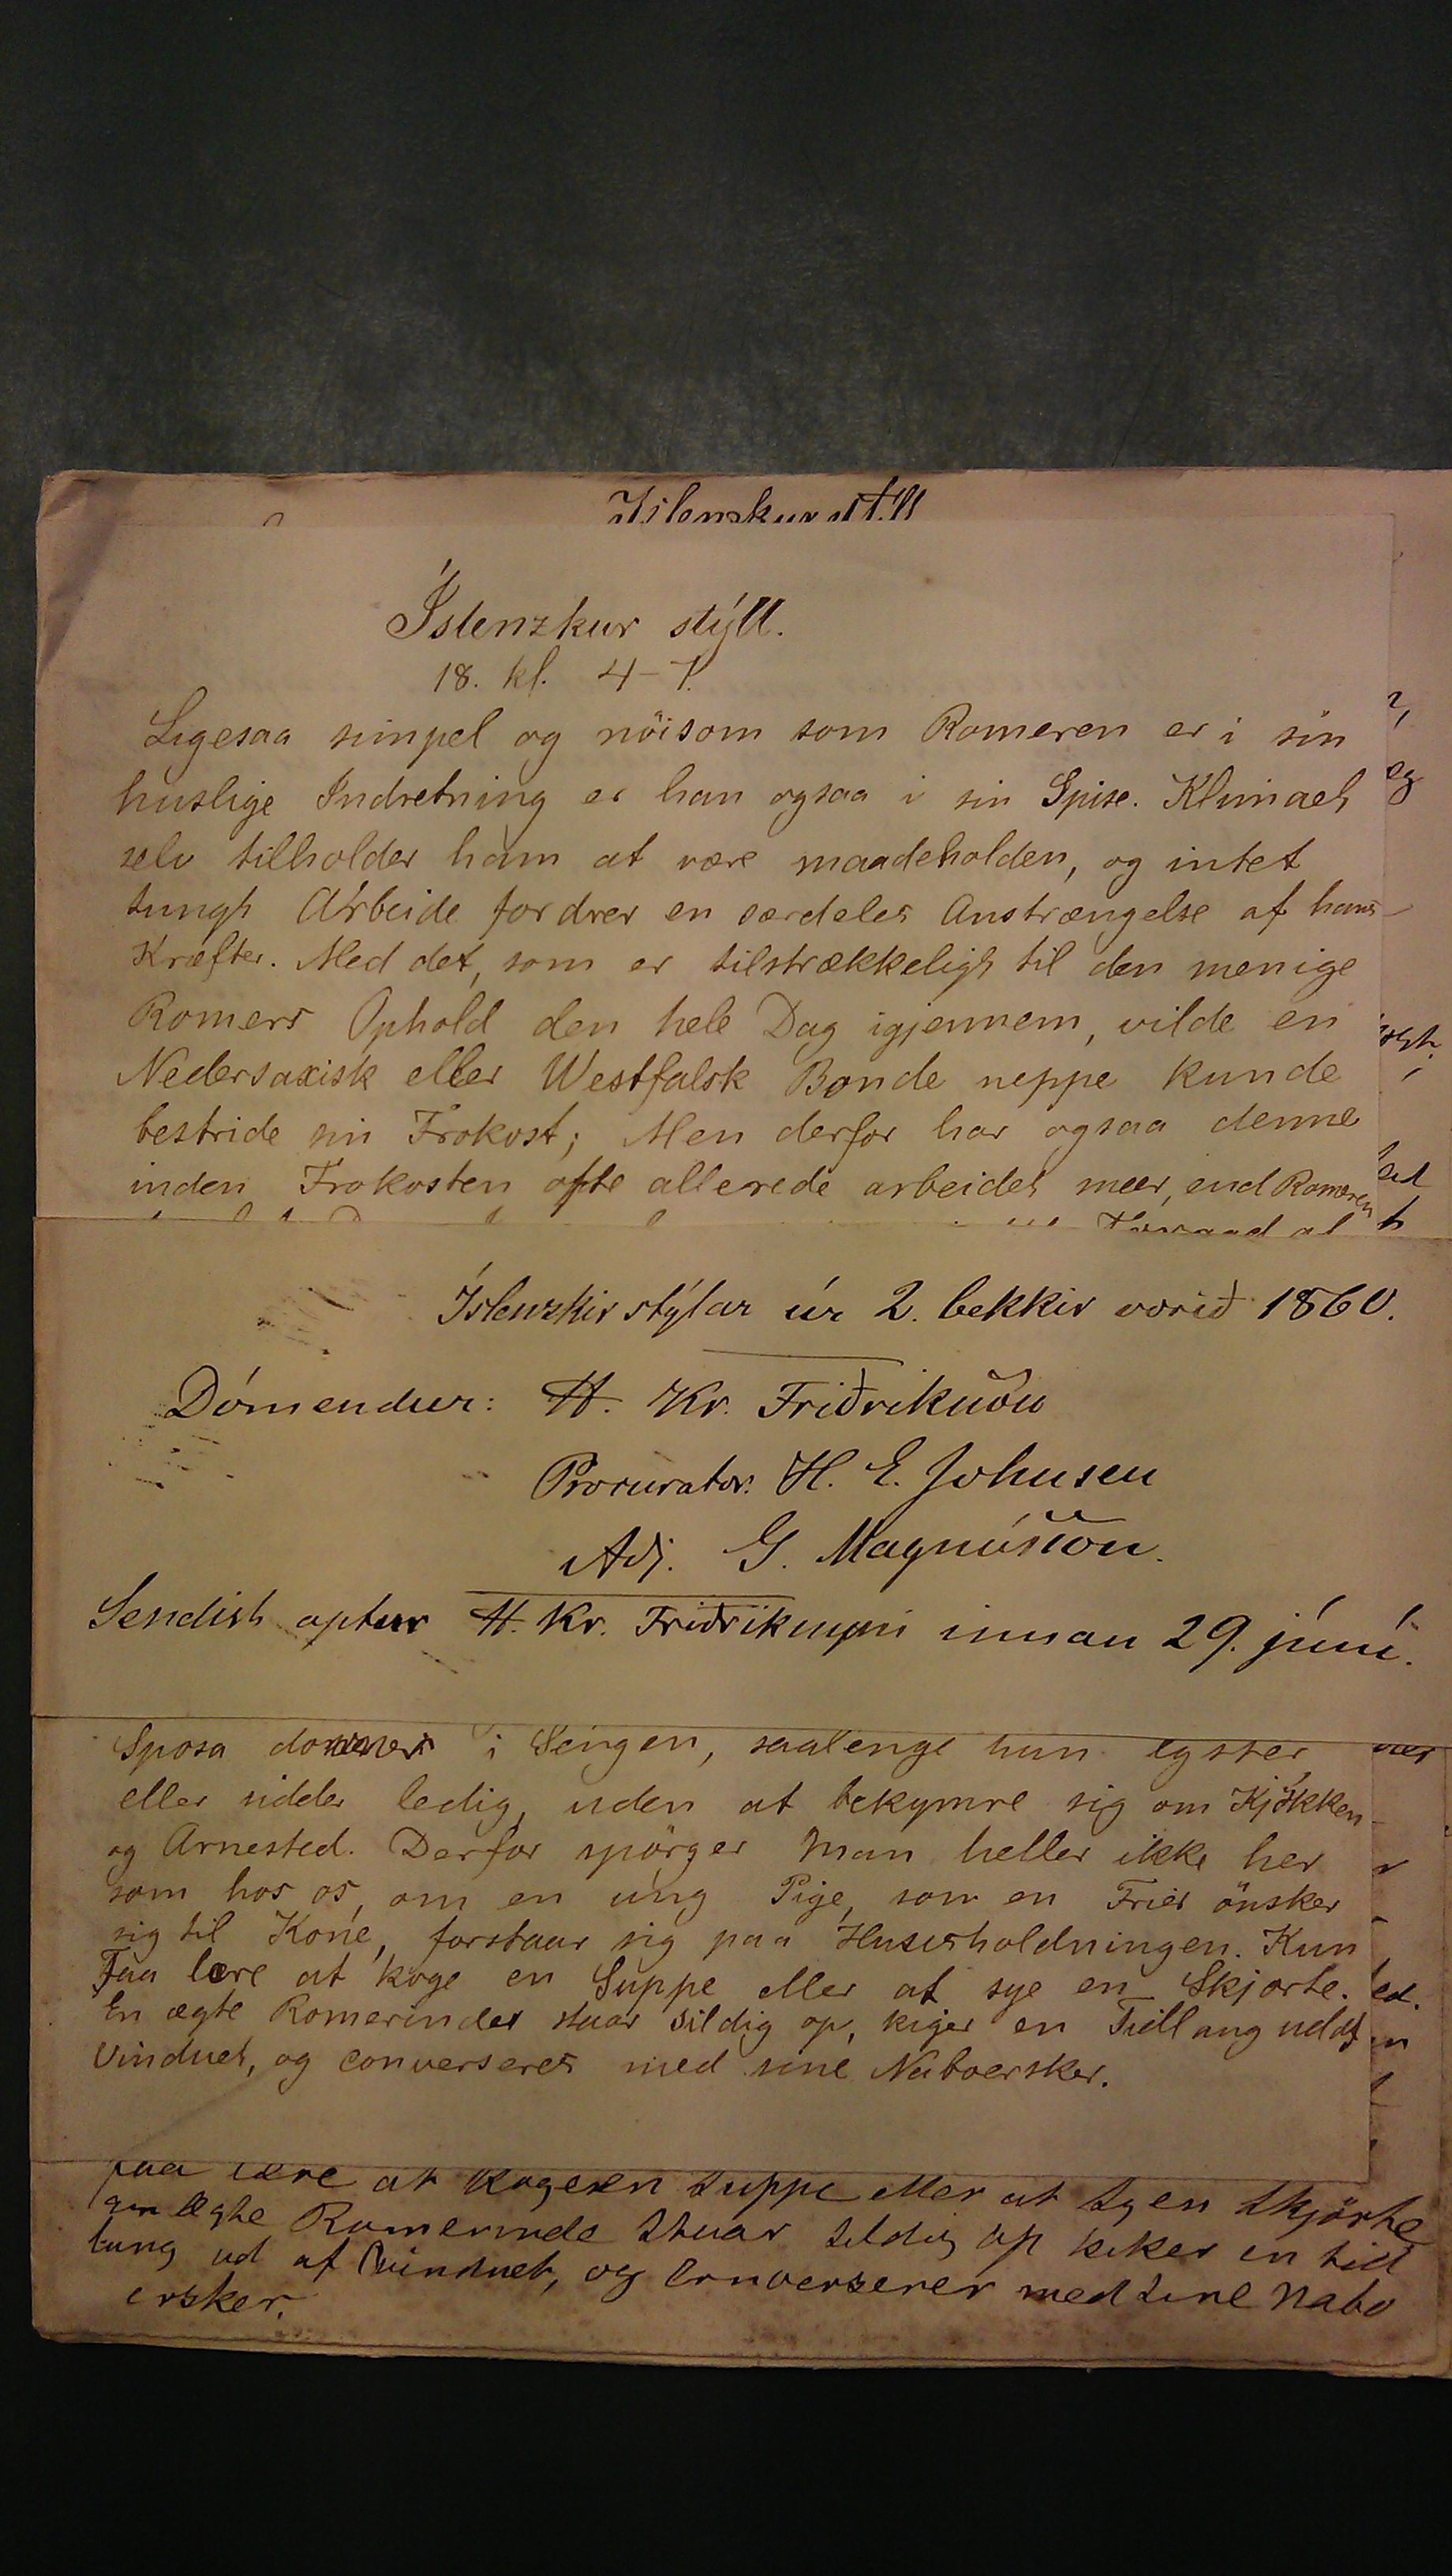 Islenskur stíll
Íslenzkur stýll.
18. kl. 4-7.
Ligesaa simpel og nöisom som Romeren er i sin
huslige Indretning er han ogsaa i sin Spise. Klimaet
selv tilholder ham at være maadeholden, og intet
tungt Arbeide fordrer en særdeles Anstrængelse af hans
Kræfter. Med det, som er tilstrækkeligt til den menige
Romers Ophold den hele Dag igjennem, vilde en
Nedersaxisk eller Westfalsk Bonde neppe kunde
bestride sin Frokost; Men derfor har ogsaa denne
inden Frokosten ofte allerede arbeidet meer, end Romeren
Íslenzkir stýlar úr 2. bekkir vorið 1860.
Dómendur: H. Kr. Friðriksson
Procurator: H. E. Johnsen
Adj. G. Magnússon.
Sendist aptur H. Kr. Friðrikssyni innan 29. júní.
Sposa i Sengen, saalenge hun lyster
eller sidder ledig, uden at bekymre sig om Kjökken
og Arnested. Derfor spörger man heller ikke her
som hos os, om en ung Pige, som en Frier önsker
sig til Kone, forstaar sig paa Huusholdningen. Kun
Faa lære at koge en Suppe eller at sye en Skjorte.
En ægte Romerindes staar sildig op, kiger en Tidlang ud af
Vinduet, og converserer med sine Naboersker.
faa lære at koge en suppe eller at sy en skjörte
en ægte Romerinde staar sildig op kiker en tid
lang ud af vinduet, og Converserer med sine Nabo
ersker.